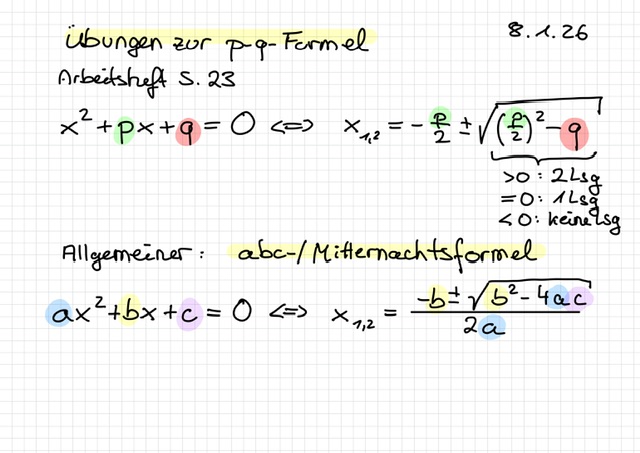 Übungen zur p-q-Formel 8.1.26
Arbeitsheft S. 23
x² + px + q = 0 <=> x₁,₂ = - p/2 ± √((p/2)² - q)
>0: 2 Lsg
=0: 1 Lsg
<0: keine Lsg
Allgemeiner: abc-/Mitternachtsformel
ax² + bx + c = 0 <=> x₁,₂ = (-b ± √(b² - 4ac))/(2a)